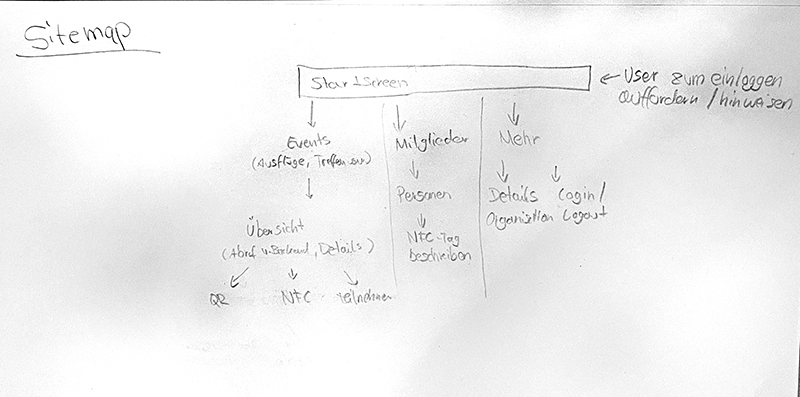 Sitemap
Startscreen
← User zum einloggen
auffordern / hinweisen
Events
(Ausflüge, Treffen usw)
Mitglieder
Mehr
Personen
Details
Organisation
Login /
Logout
Übersicht
(Abruf v. Backend, Details)
NFC-Tag
beschreiben
QR
NFC
Teilnehmer